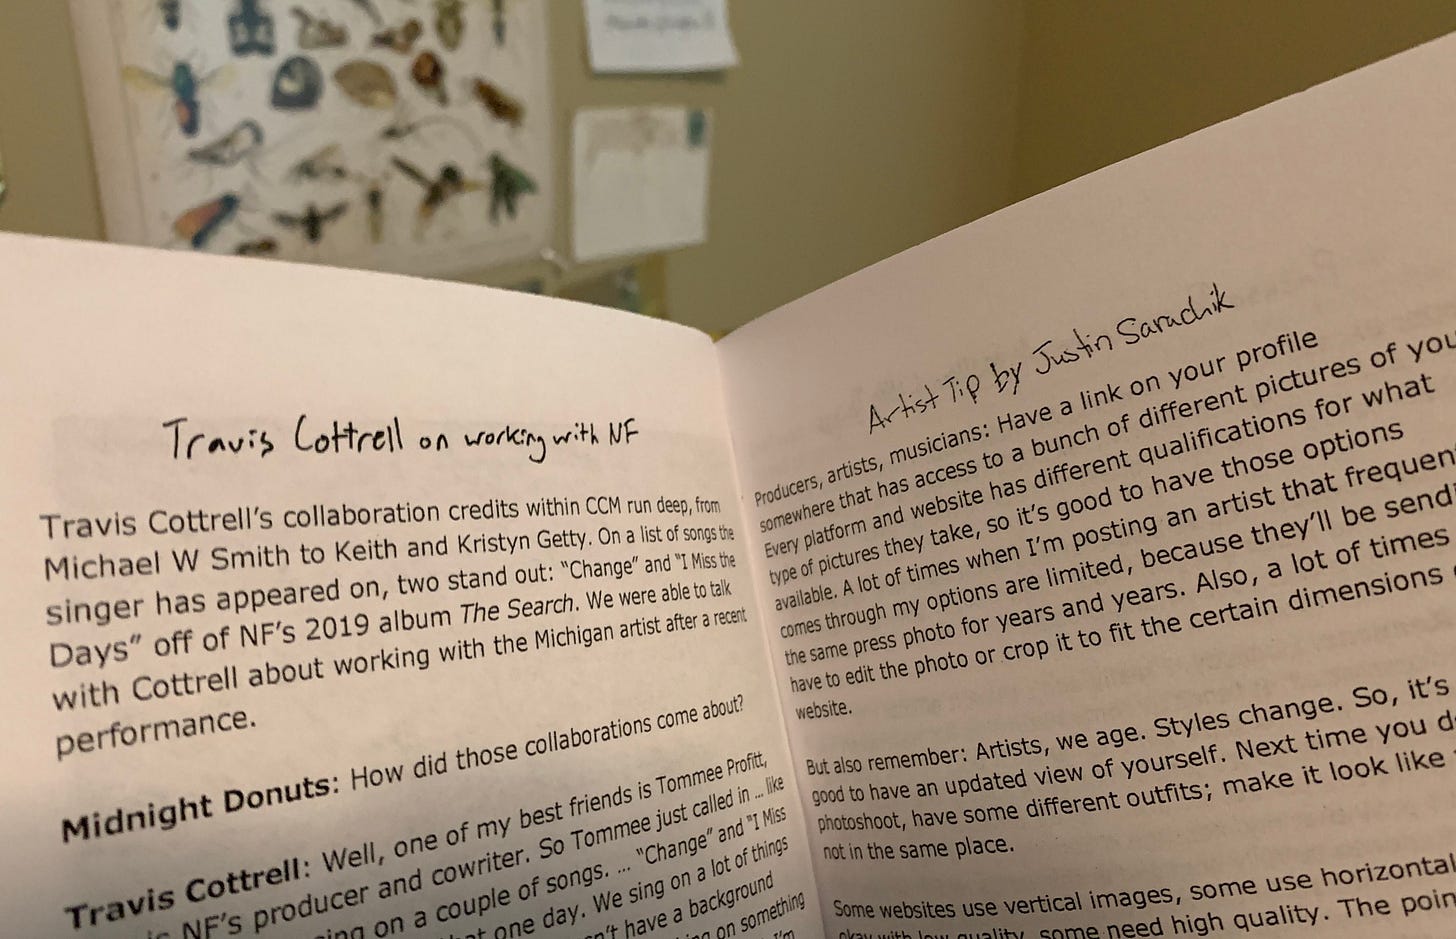 Travis Cottrell on working with NF
Travis Cottrell's collaboration credits within CCM run deep, from
Michael W Smith to Keith and Kristyn Getty. On a list of songs the
singer has appeared on, two stand out: "Change" and "I Miss the
Days" off of NF's 2019 album The Search. We were able to talk
with Cottrell about working with the Michigan artist after a recent
performance.
Midnight Donuts: How did those collaborations come about?
Travis Cottrell: Well, one of my best friends is Tommee Profitt,
NF's producer and cowriter. So Tommee just called in ... like
on a couple of songs. ... "Change" and "I Miss
one day. We sing on a lot of things
have a background
on something
I'm
Artist Tip by Justin Sarachik
Producers, artists, musicians: Have a link on your profile
somewhere that has access to a bunch of different pictures of you
Every platform and website has different qualifications for what
type of pictures they take, so it's good to have those options
available. A lot of times when I'm posting an artist that
comes through my options are limited, because they'll be
the same press photo for years and years. Also, a lot of times
have to edit the photo or crop it to fit the certain dimensions
website.
But also remember: Artists, we age. Styles change. So, it's
good to have an updated view of yourself. Next time you
photoshoot, have some different outfits; make it look like
not in the same place.
Some websites use vertical images, some use horizontal
quality, some need high quality. The